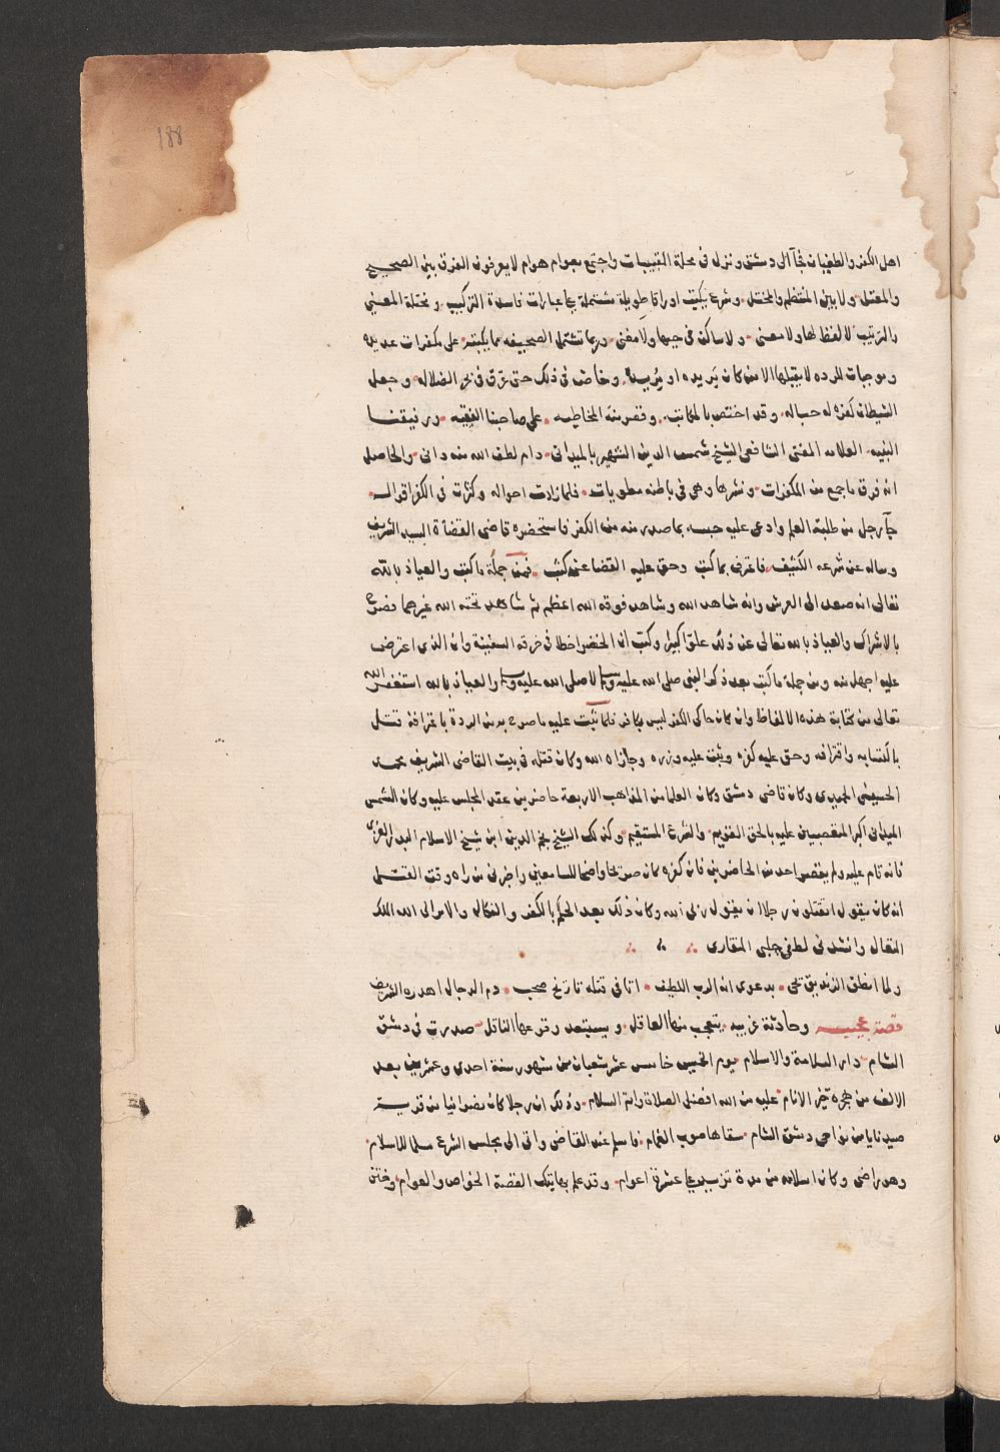 188
اهل الكفر والطغيان فجآ الى دمشق ونزل فى محلة القبيبات واجتمع بعوام هوام لا يعرفون الفرق بين الصحيح
والمعتل ولا بين المنتظم والمختل وشرع يكتب اوراقا طويلة مشتملة على عبارات فاسدة التركيب ومختلة المعنى
والترتيب لا لفظ لها ولا معنى ولا ساكن فى حيها ولا مغنى وربما تشتمل الصحيفه مما يكتبه على مكفرات عديده
وموجبات للرده لا يقبلها الا من كان يريده او مُريده وخاض فى ذلك حتى غرق فى بحر الضلاله وجعل
الشيطان كفره له حباله وقد اختص بالمكاتبه وقصر منه المخاطبه على صاحبنا الفقيه ورفيقنا
النبيه العلامه المفتى الشافعى الشيخ شمس الدين الشهير بالميدانى دام لطف الله منه دانى والحاصل
انه فرق ما جمع من المكفرات ونشرها وهى فى باطنه مطويات فلما زادت احواله وكثرت فى الكفر اقواله
جآ رجل من طلبة العلم وادعى عليه حسبه بما صدر منه من الكفر فاستحضره قاضى القضاة السيد الشريف
وساله عن شرعه الكثيف فاعترف بما كتب وحق عليه القضا عن كثب فمن جملة ما كتب والعياذ بالله
تعالى انه صعد الى العرش وانه شاهد الله وشاهد فوقه الله اعظم ثم شاهد تحته الله غيرهما فصرح
بالاشراك والعياذ بالله تعالى عن ذلك علوّا كبيرا وكتب ان الخضر اخطا فى خرقه السفينة وان الذى اعترض
عليه اجهل منه ومن جملة ما كتب بعد ذكر النبى صلى الله عليه وسلم لا صلى الله عليه وسلم والعياذ بالله استغفر الله
تعالى من كتابة هذه الالفاظ وان كان حاكى الكفر ليس بكافر فلما ثبت عليه ما صرح به من الردة باعترافه قتل
باكتسابه واقترافه وحق عليه كفره وثبت عليه وزره وجازاه الله وكان قتله فى بيت القاضى الشريف محمد
الحسينى الحميدى وكان قاضى دمشق وكان العلما من المذاهب الاربعة حاضرين عقد المجلس عليه وكان الشمس
الميدانى اكبر المتعصبين عليه بالحق القويم والشرع المستقيم وكذلك الشيخ نجم الدين ابن شيخ الاسلام البدر الغزى
فانه قام عليه ولم يقصر احد من الحاضرين فان كفره كان صريحا واضحا للسامعين واخبرنى من راه وقت القتل
انه كان يقول اتقتلون رجلا ان يقول ربى الله وكان ذلك بعد الحكم بالكفر والنكال والامر الى الله الملك
المتعال وانشدنى لطفى چلبى المقارى
ولما انطق الزنديق يحى بدعوى انه الرب اللطيف اتا فى قتله تاريخ صحب دم الدجال اهدره الشريف
قصة عجيبه وحادثة غريبه يتعجب منها العاقل ويستبعد وقوعها الناقل صدرت فى دمشق
الشام دار السلامة والاسلام يوم الخميس خامس عشر شعبان من شهور سنة احدى وعشرين بعد
الالف من هجرة خير الانام عليه من الله افضل الصلاة واتم السلام وذلك ان رجلا كان نصرانيا من قرية
صيدنايا من نواحى دمشق الشام سقاها صوب الغمام فاسلم عند القاضى واتى الى مجلس الشرع مسلما للاسلام
وهو راضى وكان اسلامه من مدة تزيد على عشرة اعوام وقد علم بهاتيك القصة الخواص والعوام وختن